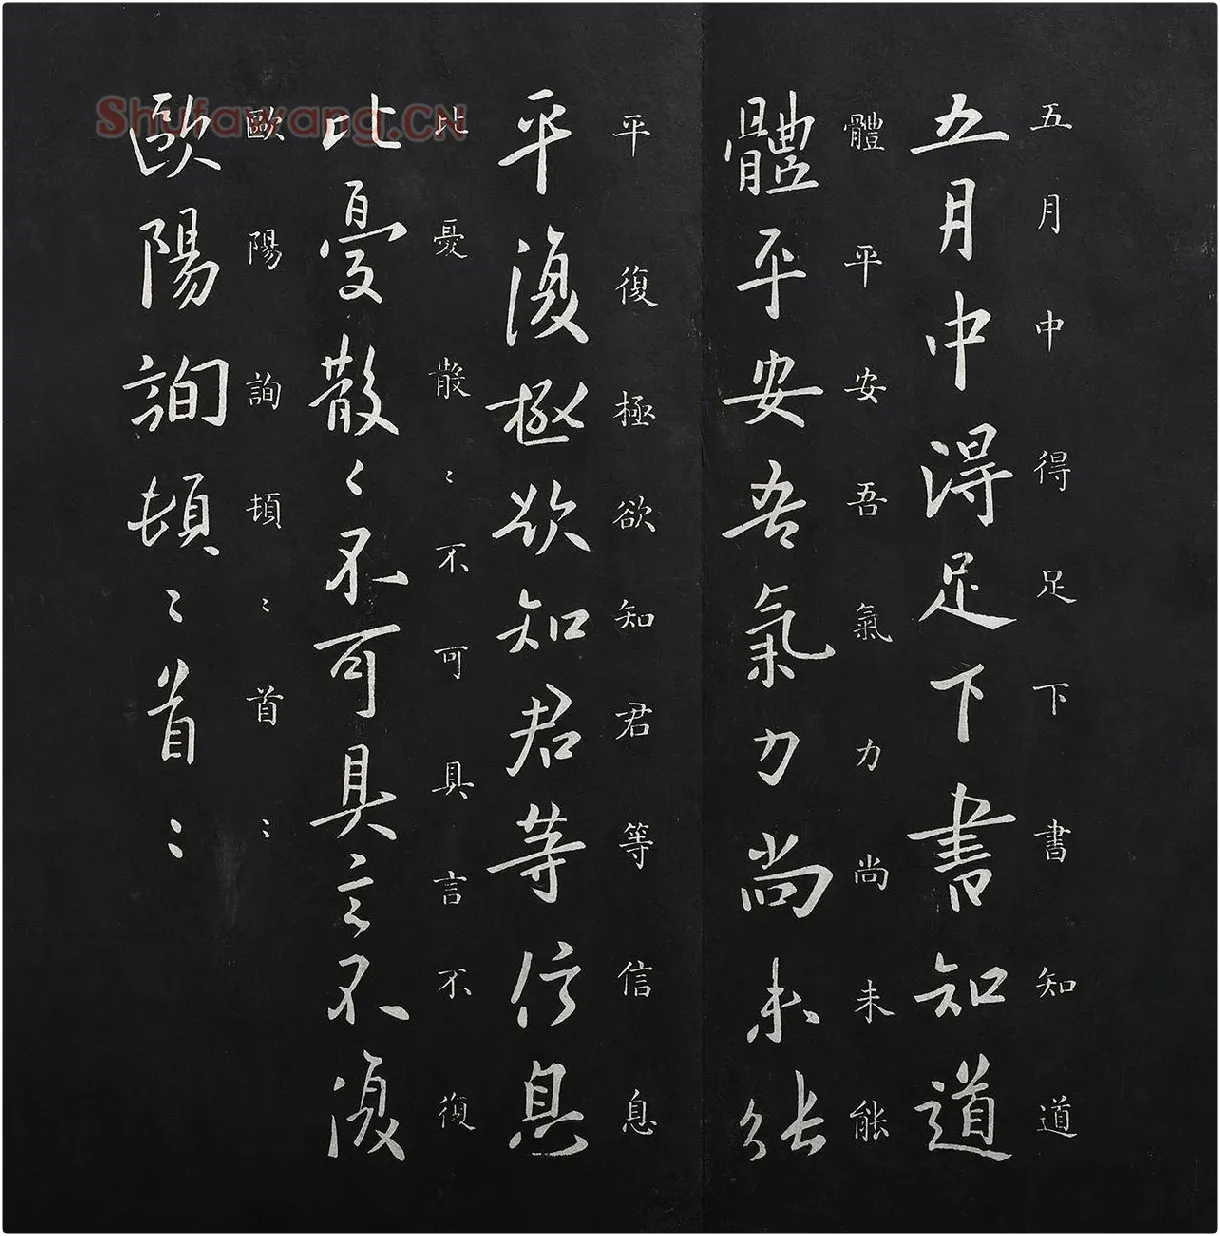 五月中得足下書知道
五月中得足下書知道
體平安吾氣力尚未能
體平安吾氣力尚未能
平復極欲知君等信息
平復極欲知君等信息
比憂散〻不可具言不復
比憂散〻不可具言不復
歐陽詢頓〻首〻
歐陽詢頓〻首〻
Shufawang.CN